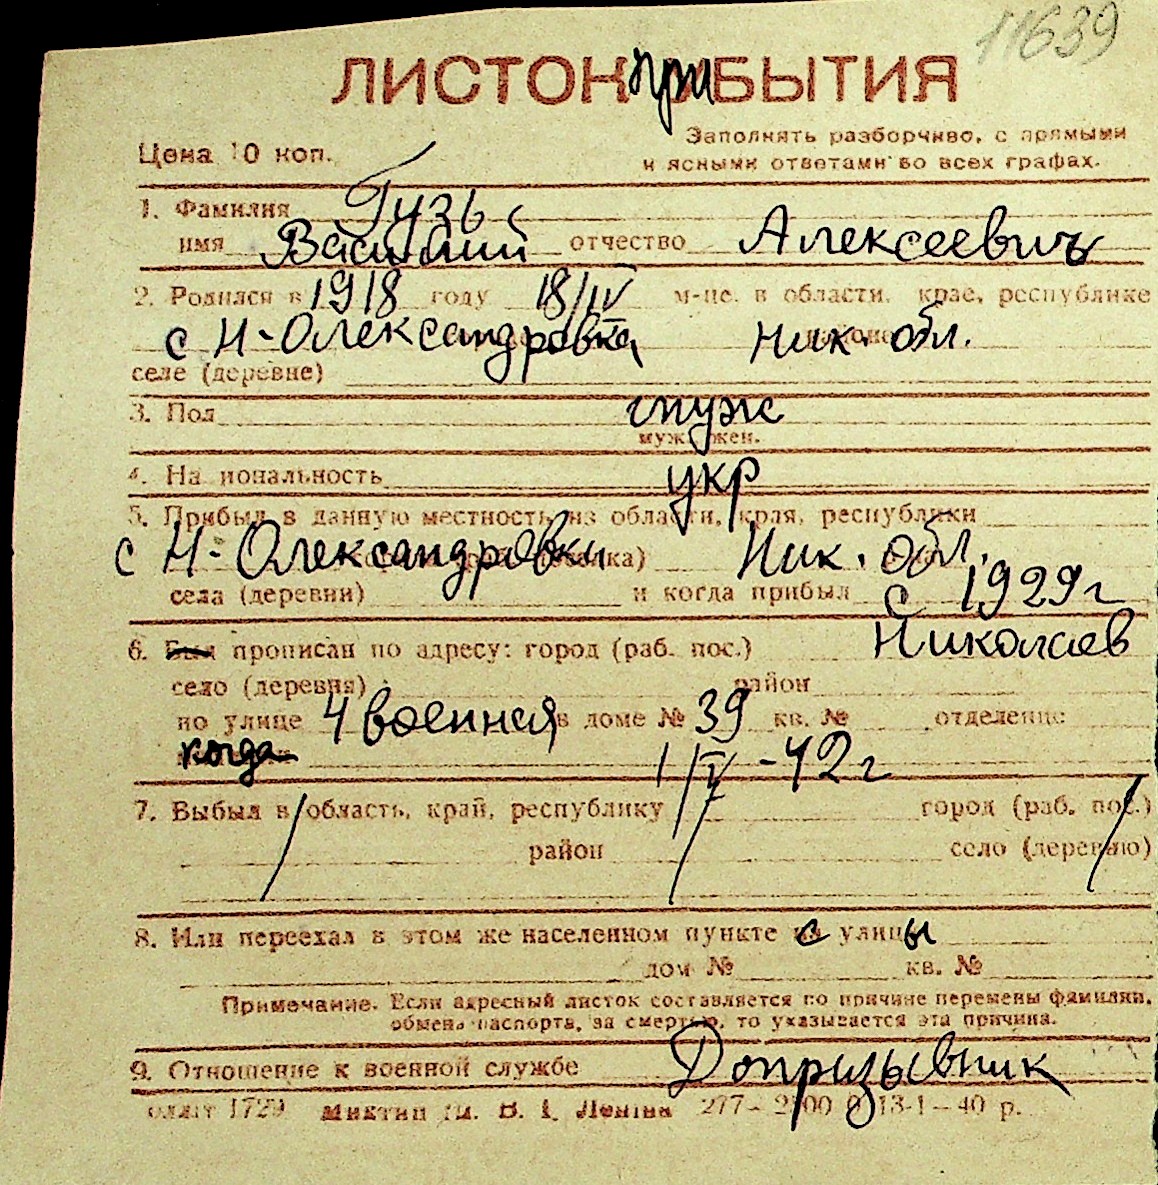 11639
ЛИСТОК ПРИБЫТИЯ
Цена 10 коп.
Заполнять разборчиво, с прямыми
и ясными ответами во всех графах.
1. Фамилия Гузь
имя Василий отчество Алексеевич
2. Родился в 1918 году 18/IV м-це. в области, крае, республике
с Н-Олександровка Ник. обл.
селе (деревне)
3. Пол муж
муж. жен.
4. Национальность укр
5. Прибыл в данную местность из области, края, республики
с Н-Олександровки Ник. обл.
села (деревни) и когда прибыл с 1929 г
6. Был прописан по адресу: город (раб. пос.) Николаев
село (деревня) район
по улице 4 военная в доме № 39 кв. № отделение
когда 1/IV-42 г
7. Выбыл в область, край, республику город (раб. пос.)
район село (деревню)
8. Или переехал в этом же населенном пункте с улицы
дом № кв. №
Примечание. Если адресный листок составляется по причине перемены фамилии,
обмена паспорта, за смертью, то указывается эта причина.
9. Отношение к военной службе Допризывник
1729 Леніна 277- 13-1-40 р.